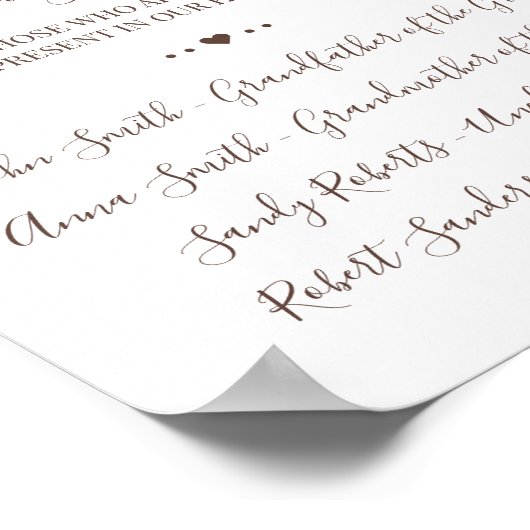 HOSE WHO A
PRESENT IN OUR
hn Smith - Grandfather of the G
Anna Smith - Grandmother of
Sandy Roberts - Un
Robert Sander